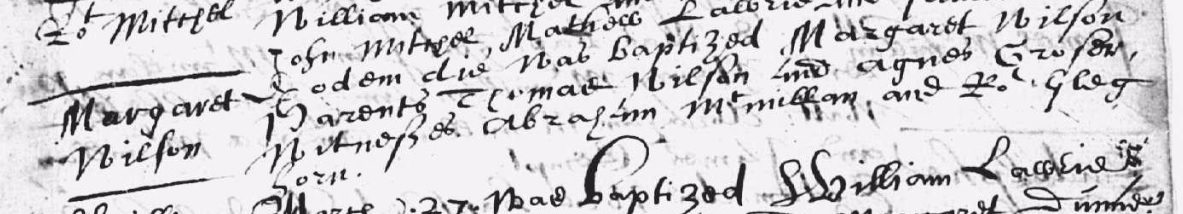 Rot Mitchel William Mitchel
John Mitchel Mathew Lawrie
Eodem die was baptized Margaret Wilson
Margaret Parents Thomas Wilson and Agnes Groser,
Wilson Witnesses Abraham Mcmillan and Rot Gleg
born.
March 27. was baptized William Lawrie